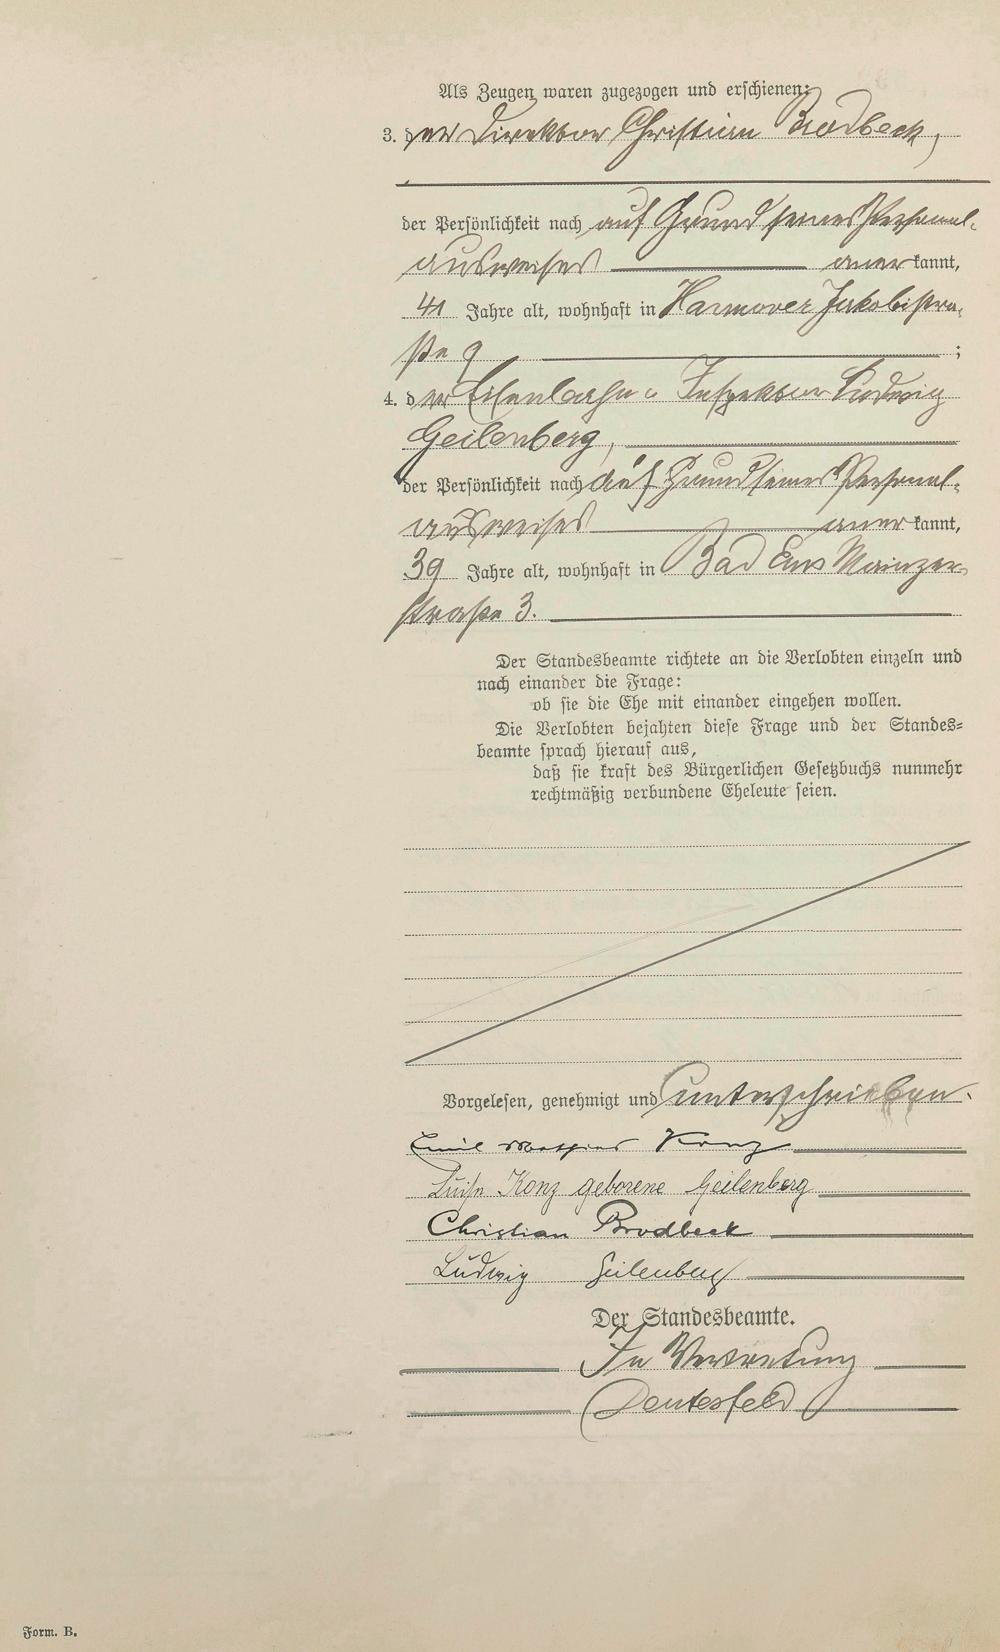 Als Zeugen waren zugezogen und erschienen:
3. der Direktor Christian Brodbeck,
der Persönlichkeit nach auf Grund seines Personal-
ausweises anerkannt,
41 Jahre alt, wohnhaft in Hannover Jakobistra-
ße 9 ;
4. der Eisenbahn-Inspektor Ludwig
Geilenberg,
der Persönlichkeit nach auf Grund seines Personal-
ausweises anerkannt,
39 Jahre alt, wohnhaft in Bad Ems Mainzer
straße 3.
Der Standesbeamte richtete an die Verlobten einzeln und
nach einander die Frage:
ob sie die Ehe mit einander eingehen wollen.
Die Verlobten bejahten diese Frage und der Standes-
beamte sprach hierauf aus,
daß sie kraft des Bürgerlichen Gesetzbuchs nunmehr
rechtmäßig verbundene Eheleute seien.
Vorgelesen, genehmigt und unterschrieben.
Emil Konz
Luise Konz geborene Geilenberg
Christian Brodbeck
Ludwig Geilenberg
Der Standesbeamte.
In Vertretung
Dentesfeld
Form. B.